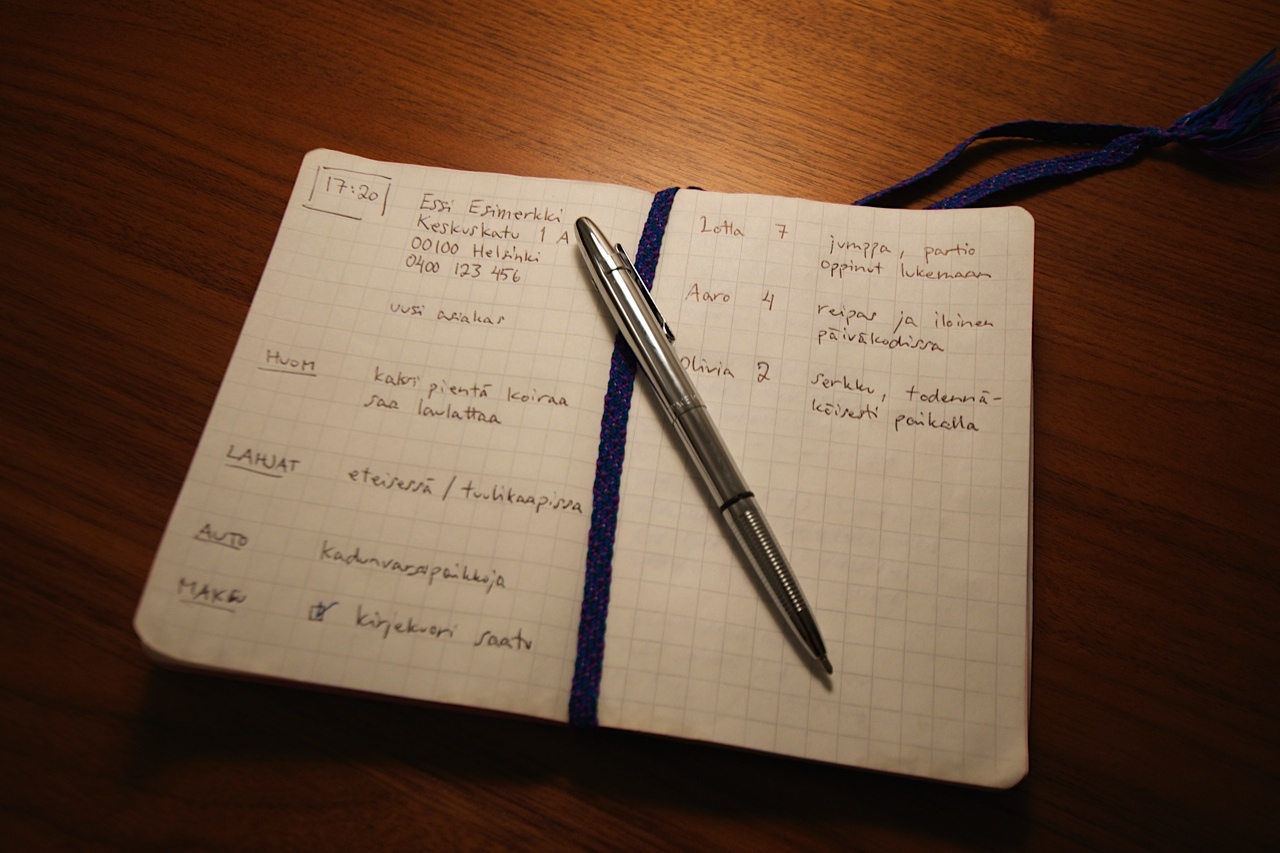 17:20
Essi Esimerkki
Keskuskatu 1 A
00100 Helsinki
0400 123 456
uusi asiakas
HUOM
kaksi pientä koiraa
saa laulattaa
LAHJAT
eteisessä / tuulikaapissa
AUTO
kadunvarsipaikkoja
MAKSU
kirjekuori saatu
Lotta 7
jumppa, partio
oppinut lukemaan
Aaro 4
reipas ja iloinen
päiväkodissa
Olivia 2
serkku, todennä-
köisesti paikalla